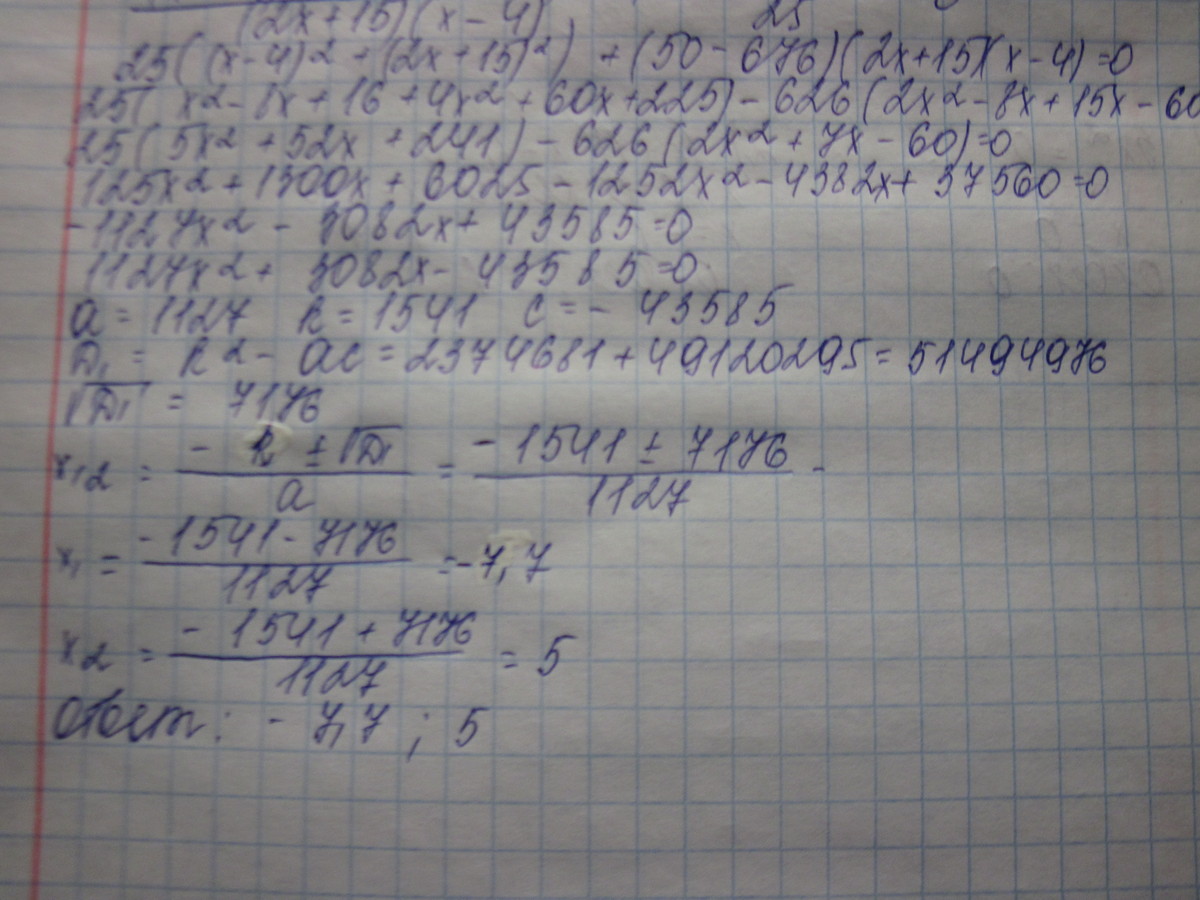 (2x+15)(x-4) 25
25((x-4)² + (2x+15)²) + (50-676)(2x+15)(x-4)=0
25(x²-8x+16+4x²+60x+225)-626(2x²-8x+15x-60
25(5x²+52x+241)-626(2x²+7x-60)=0
125x²+1300x+6025-1252x²-4382x+37560=0
-1127x²-3082x+43585=0
1127x²+3082x-43585=0
a=1127 k=1541 c=-43585
D₁ = k²-ac=2374681+49120295=51494976
√D₁ = 7176
x₁₂ = (-k ± √D₁)/a = (-1541 ± 7176)/1127
x₁ = (-1541-7176)/1127 = -7,7
x₂ = (-1541+7176)/1127 = 5
Ответ: -7,7; 5